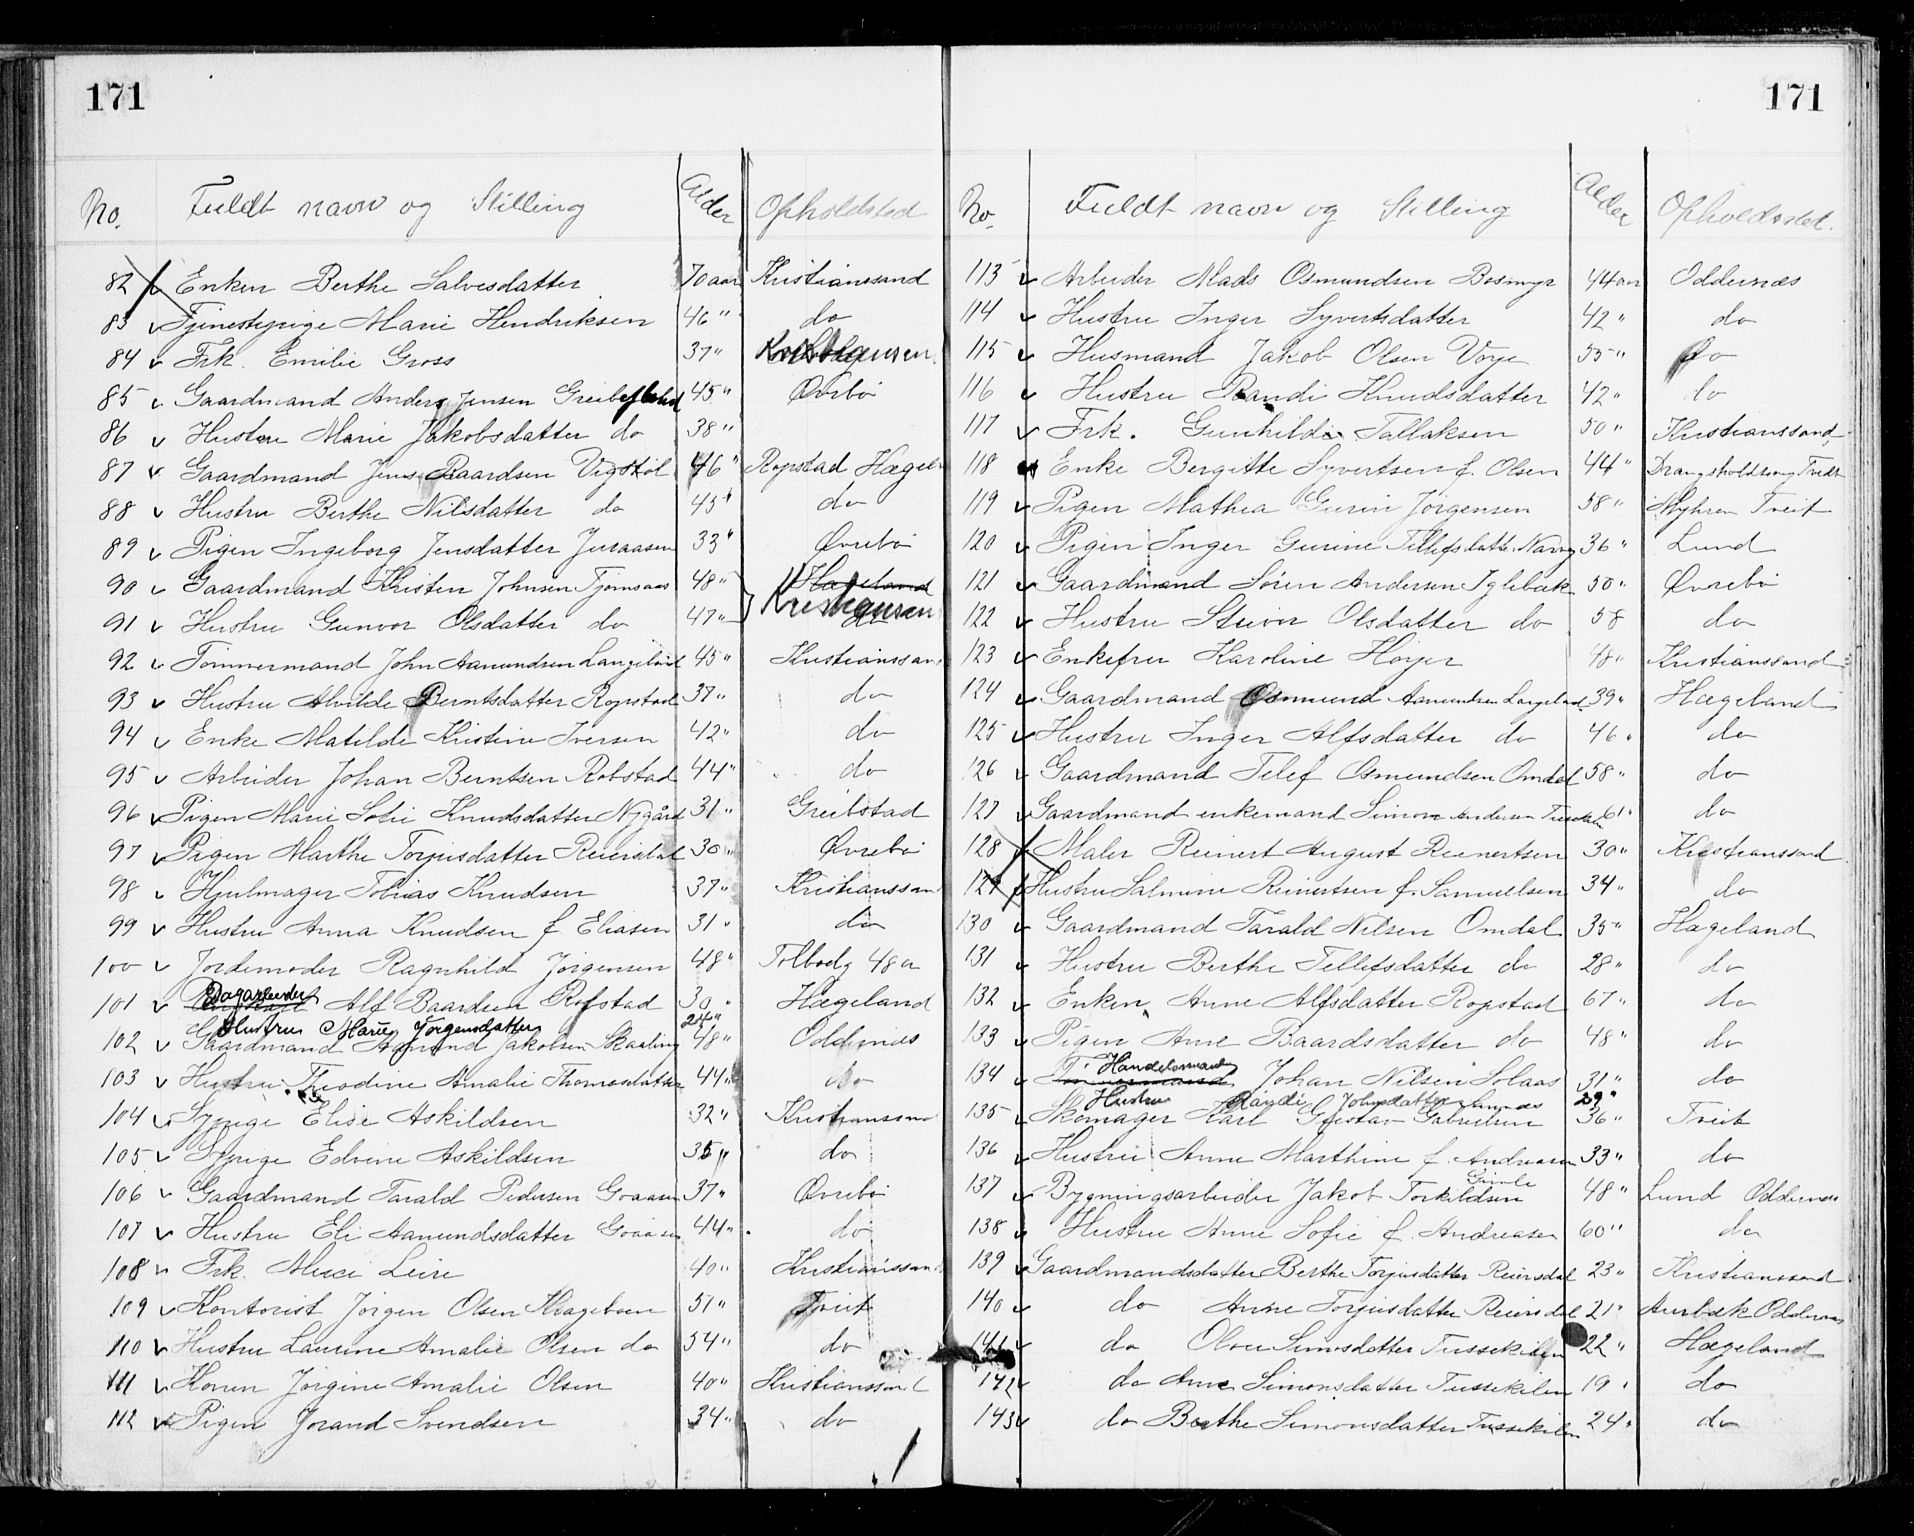 171
No. Fuldt navn og Stilling Alder Opholdsted
82 Enken Berthe Salvesdatter 70 aar Kristianssand
83 Tjenestepige Marie Hendriksen 46 " do
84 Frk. Emilie Gross 37 "
85 Gaardmand Anders Jensen Greibesland 45 " Øvrebø
86 Hustru Marie Jakobsdatter do 38 "
87 Gaardmand Jens Baardsen Vigstøl 46 " Ropstad Hægel.
88 Hustru Berthe Nilsdatter do 45 " do
89 Pigen Ingeborg Jensdatter Juraasen 33 " Øvrebø
90 Gaardmand Kristen Johnsen Tjomsaas 48 " Hægeland
91 Hustru Gunvor Olsdatter do 47 " Kristiansen
92 Tømmermand John Aamundsen Langeland 45 " Kristianssand
93 Hustru Alvilde Berntsdatter Ropstad 37 " do
94 Enke Matilde Kristine Iversen 42 " do
95 Arbeider Johan Berntsen Robstad 44 " do
96 Pigen Marie Sofie Knudsdatter Nygård 31 " Greibstad
97 Pigen Marthe Torjusdatter Reiersdal 30 " Øvrebø
98 Hjulmager Tobias Knudsen 37 " Kristianssan
99 Hustru Anna Knudsen f. Eliasen 31 " do
100 Jordemoder Ragnhild Jørgensen 48 " Tolbodg 48 a
101 Dagarbeider Alf Baardsen Rofstad 30 " Hægeland
Hustru Marie Jørgensdatter 24 "
102 Gaardmand Aamund Jakobsen Skaaling 48 " Oddernes
103 Hustru Theodine Amalie Thomasdatter 44 " do
104 Sypige Elise Askildsen 32 " Kristianssand
105 Sypige Edvine Askildsen 35 " do
106 Gaardmand Tarald Pedersen Graasen 37 " Øvrebø
107 Hustru Eli Aamundsdatter Graasen 44 " do
108 Frk. Meeci Leire 40 " Kristianssand
109 Kontorist Jørgen Olsen Krageboen 51 " Tveit
110 Hustru Laurine Amalie Olsen do 54 " do
111 Konen Jørgine Amalie Olsen 40 " Kristianssand
112 Pigen Jorand Svendsen 34 " do
171
No. Fuldt navn og Stilling Alder Opholdssted.
113 Arbeider Mads Osmundsen Bosmyr 44 aar Oddernes
114 Hustru Inger Syvertsdatter 42 " do
115 Husmand Jakob Olsen Voje 55 " do
116 Hustru Randi Knudsdatter 42 " do
117 Frk. Gunhilda Tallaksen 50 " Kristianssand
118 Enke Bergitte Syvertsen f. Olsen 44 "
119 Pigen Mathea Gurin Jørgensen 58 " Myhren Tveit
120 Pigen Inger Gurine Tellefsdatter 36 " Lund
121 Gaardmand Søren Andersen Iglebæk 50 " Øvrebø
122 Hustru Stuvor Olsdatter do 58 do
123 Enkefru Karoline Høyer 48 " Kristianssand
124 Gaardmand Osmund Aamundsen Langeland 39 " Hægeland
125 Hustru Inger Alfsdatter do 46 " do
126 Gaardmand Telef Osmundsen Omdal 58 " do
127 Gaardmand enkemand Simon Andersen Tussekilen 61 " do
128 Maler Reinert August Reinertsen 30 " Kristianssand
129 Hustru Salmine Reinertsen f. Samuelsen 34 " do
130 Gaardmand Tarald Nilsen Omdal 35 " Hægeland
131 Hustru Berthe Tellefsdatter do 28 " do
132 Enken Anne Alfsdatter Ropstad 67 " do
133 Pigen Ane Baardsdatter do 48 " do
134 Handelsmand Johan Nilsen Solaas 31 " do
Hustru Randi Johnsdatter 29 "
135 Skomager Karl Gustav Gabrielsen 36 " Tveit
136 Hustru Anne Marthine f. Andreasen 33 " do
137 Bygningsarbeider Jakob Torkildsen Gimle 48 " Lund Oddernes
138 Hustru Anne Sofie f. Andreasen 60 " do
139 Gaardmandsdatter Berthe Torjusdatter Reiersdal 23 " Kristianssand
140 do Anne Torjusdatter Reiersdal 21 " Aurbæk Oddernes
141 do Olree Simosdatter Tussekilen 22 " Hægeland
142 do Ane Simonsdatter Tussekilen 19 " do
143 do Berthe Simonsdatter Tussekilen 24 " do